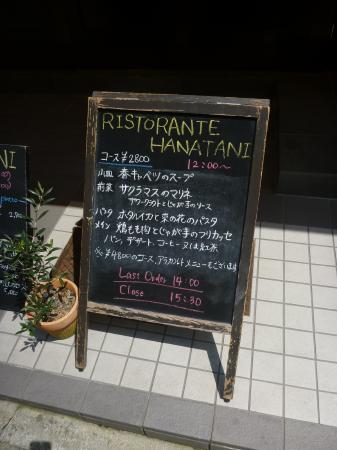 RISTORANTE
HANATANI
コース ¥2800
12:00~
春キャベツのスープ
前菜 サクラマスのマリネ
パスタ ホタルイカと菜の花のパスタ
メイン 鶏もも肉とじゃが芋のフリカッセ
パン、デザート、コーヒー又は紅茶
※¥4800のコース、アラカルトメニューもございます
Last Order 14:00
Close 15:30
NI